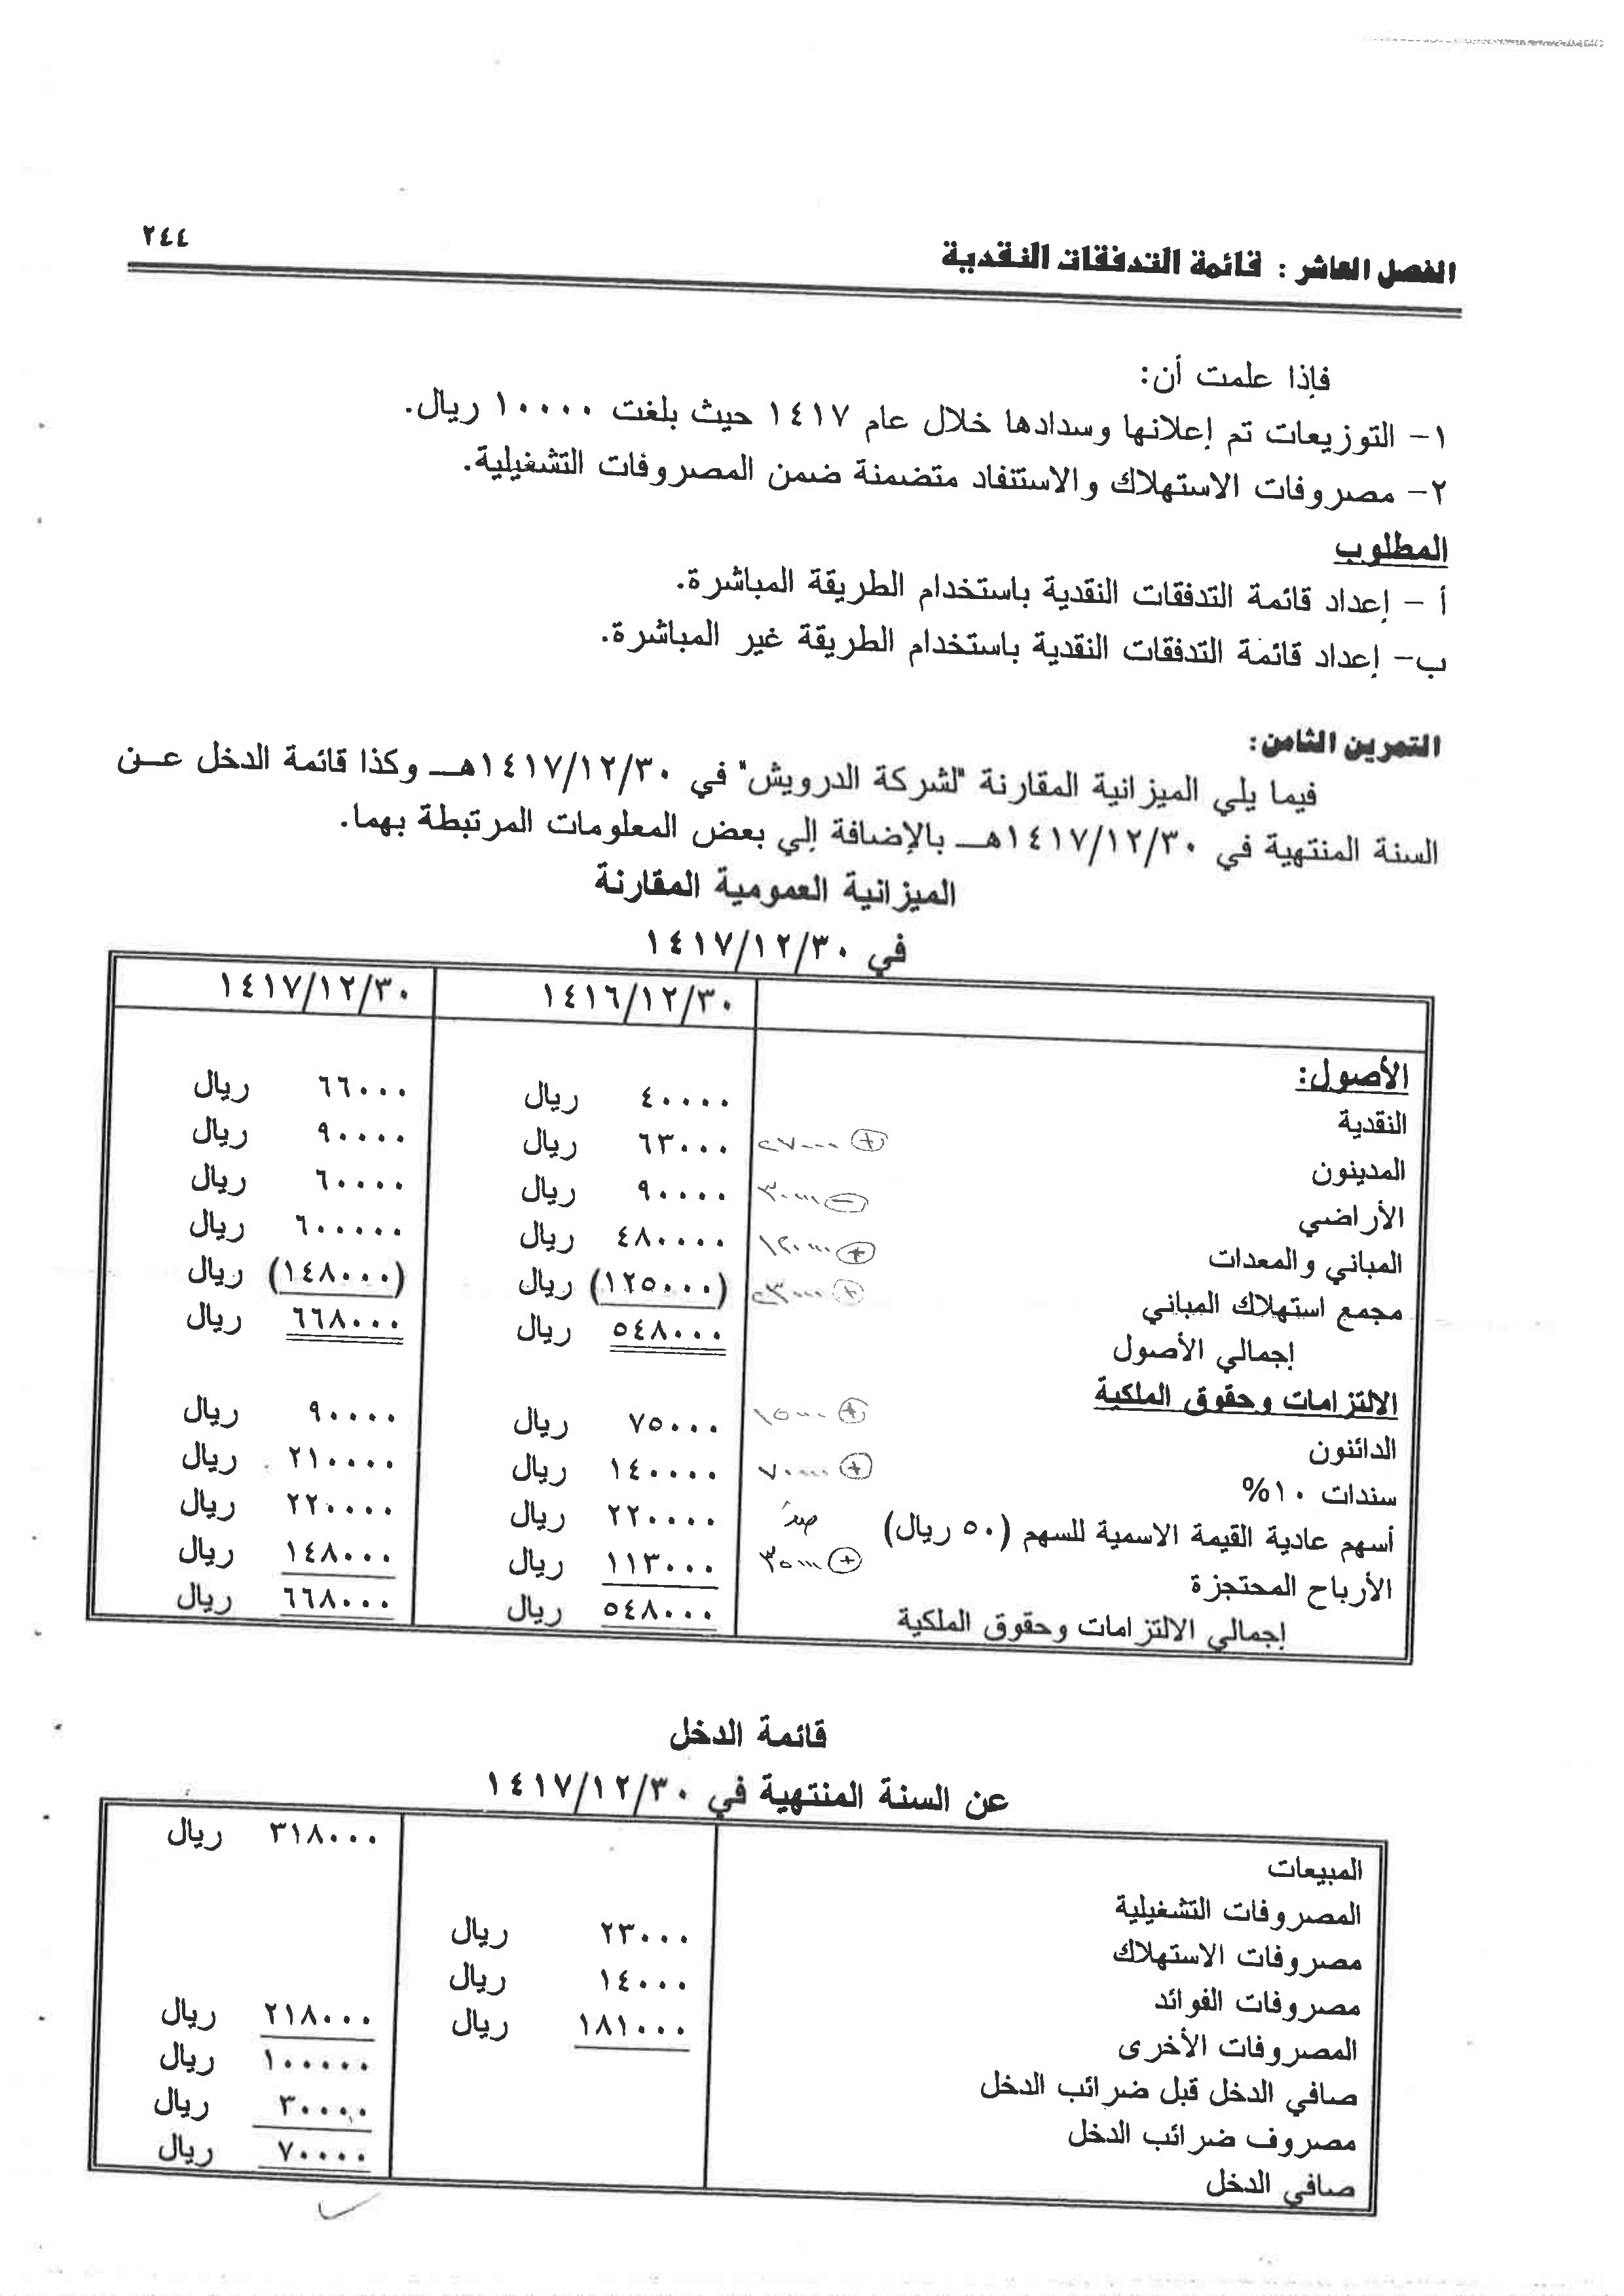 الفصل العاشر : قائمة التدفقات النقدية ٢٤٤
فإذا علمت أن:
١- التوزيعات تم إعلانها وسدادها خلال عام ١٤١٧ حيث بلغت ١٠٠٠٠ ريال.
٢- مصروفات الاستهلاك والاستنفاد متضمنة ضمن المصروفات التشغيلية.
المطلوب
أ - إعداد قائمة التدفقات النقدية باستخدام الطريقة المباشرة.
ب- إعداد قائمة التدفقات النقدية باستخدام الطريقة غير المباشرة.
التمرين الثامن:
فيما يلي الميزانية المقارنة "لشركة الدرويش" في ١٤١٧/١٢/٣٠هـ وكذا قائمة الدخل عن
السنة المنتهية في ١٤١٧/١٢/٣٠هـ بالإضافة إلي بعض المعلومات المرتبطة بهما.
الميزانية العمومية المقارنة
في ١٤١٧/١٢/٣٠
١٤١٦/١٢/٣٠ ١٤١٧/١٢/٣٠
الأصول:
النقدية ٤٠٠٠٠ ريال ٦٦٠٠٠ ريال
المدينون + ٢٧٠٠٠ ٦٣٠٠٠ ريال ٩٠٠٠٠ ريال
الأراضي - ٣٠٠٠٠ ٩٠٠٠٠ ريال ٦٠٠٠٠ ريال
المباني والمعدات + ١٢٠٠٠٠ ٤٨٠٠٠٠ ريال ٦٠٠٠٠٠ ريال
مجمع استهلاك المباني + ٢٣٠٠٠ (١٢٥٠٠٠) ريال (١٤٨٠٠٠) ريال
إجمالي الأصول ٥٤٨٠٠٠ ريال ٦٦٨٠٠٠ ريال
الالتزامات وحقوق الملكية
الدائنون + ١٥٠٠٠ ٧٥٠٠٠ ريال ٩٠٠٠٠ ريال
سندات ١٠% + ٧٠٠٠٠ ١٤٠٠٠٠ ريال ٢١٠٠٠٠ ريال
أسهم عادية القيمة الاسمية للسهم (٥٠ ريال) ٢٢٠٠٠٠ ريال ٢٢٠٠٠٠ ريال
الأرباح المحتجزة + ٣٥٠٠٠ ١١٣٠٠٠ ريال ١٤٨٠٠٠ ريال
إجمالي الالتزامات وحقوق الملكية ٥٤٨٠٠٠ ريال ٦٦٨٠٠٠ ريال
قائمة الدخل
عن السنة المنتهية في ١٤١٧/١٢/٣٠
المبيعات ٣١٨٠٠٠ ريال
المصروفات التشغيلية
مصروفات الاستهلاك ٢٣٠٠٠ ريال
مصروفات الفوائد ١٤٠٠٠ ريال
المصروفات الأخرى ١٨١٠٠٠ ريال ٢١٨٠٠٠ ريال
صافي الدخل قبل ضرائب الدخل ١٠٠٠٠٠ ريال
مصروف ضرائب الدخل ٣٠٠٠٠ ريال
صافي الدخل ٧٠٠٠٠ ريال